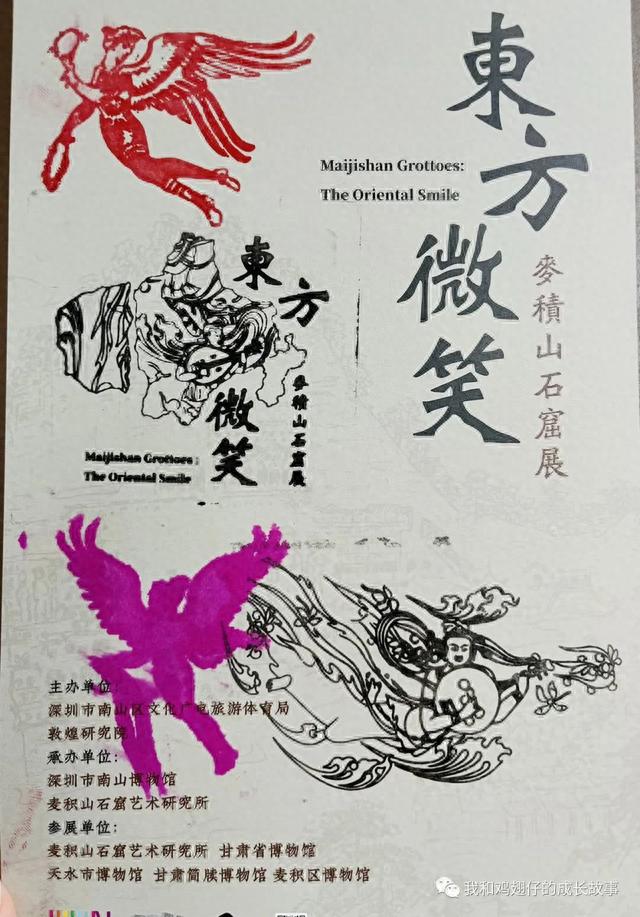 東方微笑
Maijishan Grottoes:
The Oriental Smile
麥積山石窟展
東方
微笑
麥積山石窟展
Maijishan Grottoes:
The Oriental Smile
主办单位:
深圳市南山区文化广电旅游体育局
敦煌研究院
承办单位:
深圳市南山博物馆
麦积山石窟艺术研究所
参展单位:
麦积山石窟艺术研究所 甘肃省博物馆
天水市博物馆 甘肃简牍博物馆 麦积区博物馆
我和鸡翅仔的成长故事